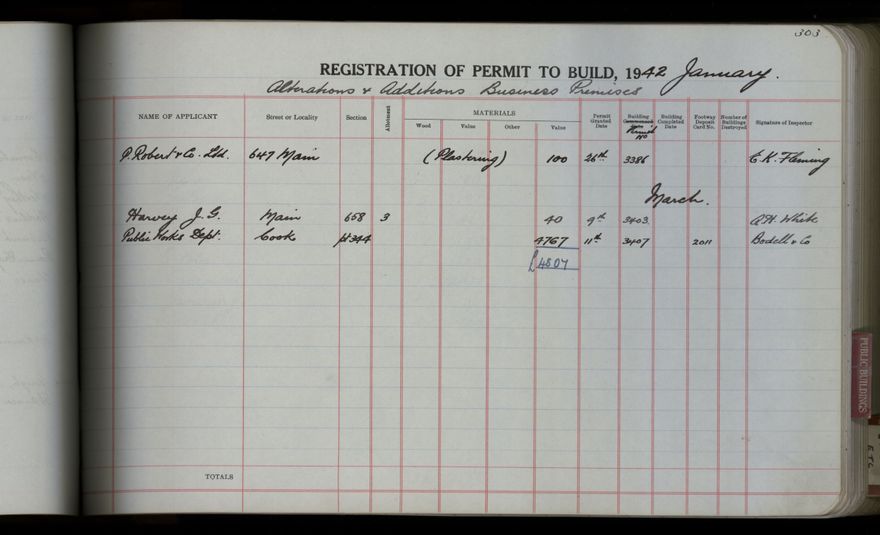 303
REGISTRATION OF PERMIT TO BUILD, 1942 January.
Alterations & Additions Business Premises
NAME OF APPLICANT Street or Locality Section Allotment MATERIALS Wood Value Other Value Permit Granted Date Building Permit No Building Completed Date Footway Deposit Card No. Number of Buildings Destroyed Signature of Inspector
P. Robert & Co. Ltd. 647 Main (Plastering) 100 26th 3386 E. K. Fleming
March.
Harvey J. G. Main 658 3 40 9th 3403 A H. White
Public Works Dept. Cook pt 344 4767 11th 3407 2011 Bodell & Co
£4807
TOTALS
PUBLIC BUILDINGS
ETC